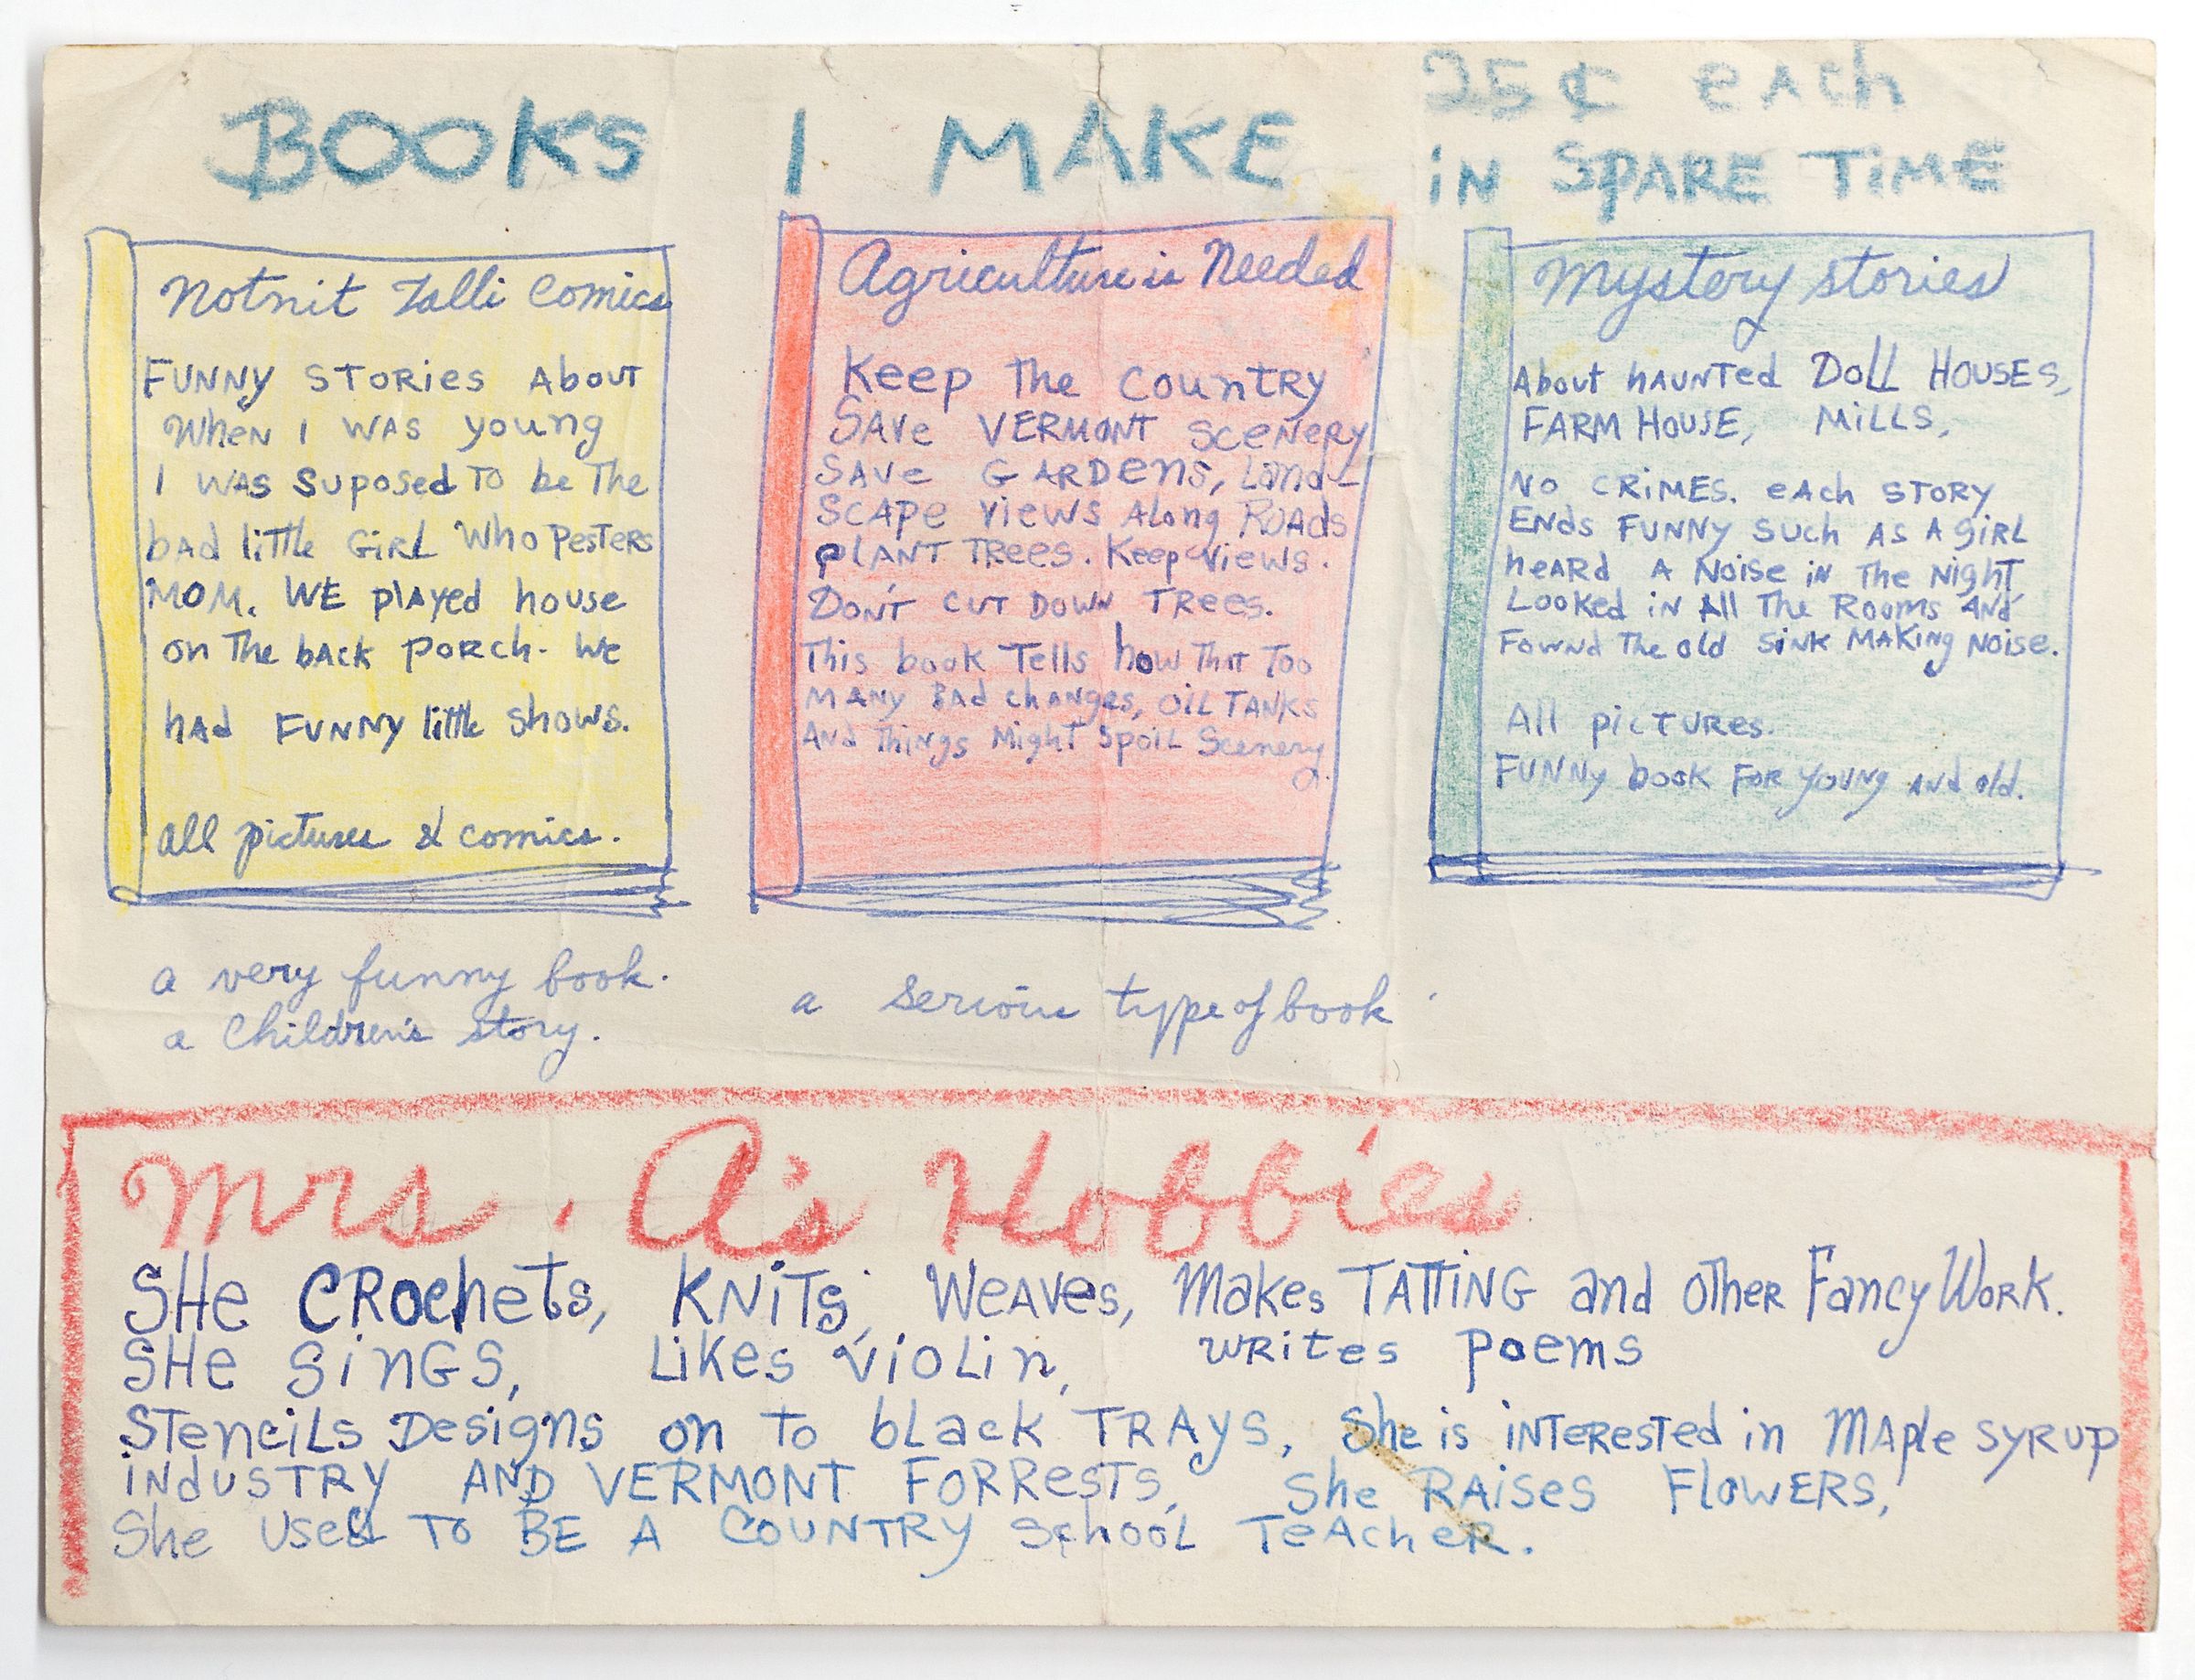 25¢ each
BOOKS I MAKE
iN SPARE TiME
Notnit Zalli Comics
FUNNY STORies About
When I was young
I was Suposed To be The
bad little GiRL Who Pesters
MOM. WE played house
on The back PORCh. We
had FUNNY little shows.
all pictures & comics.
a very funny book.
a Children's story.
Agriculture is Needed
Keep The Country
SAVe VERMONT SCENERY
SAVe GARDens, Land-
SCAPe Views Along ROADs
PLANT TRees. Keep Views.
DON'T CUT DOWN TRees.
This book Tells how That Too
MANY BAd changes, OiL TANKs
And Things Might Spoil Scenery
a serious type of book.
Mystery stories
About hAUNTed DoLL HOUSES,
FARM HOUSE, MiLLS,
NO CRiMES. eAch STORY
ENds FUNNY such AS A giRL
heARd A Noise iN The Night
Looked iN All The Rooms ANd
FowNd The old SiNK MAKiNg NOise.
All picTURes.
FUNNY book FOR YOUNg ANd old.
Mrs. A's Hobbies
SHe CRochets, KNiTs, WeAVes, Makes TATTiNG and other Fancy Work.
SHe SiNGS, Likes VioLin, WRites Poems
STenciLs Designs on to bLack TRAys, She is iNTeResTed in Maple SYRUP
iNdUSTRY AND VERMONT FORResTs, She RAises FlOWERS,
She Used TO BE A COUNTRY SchooL TeAcheR.